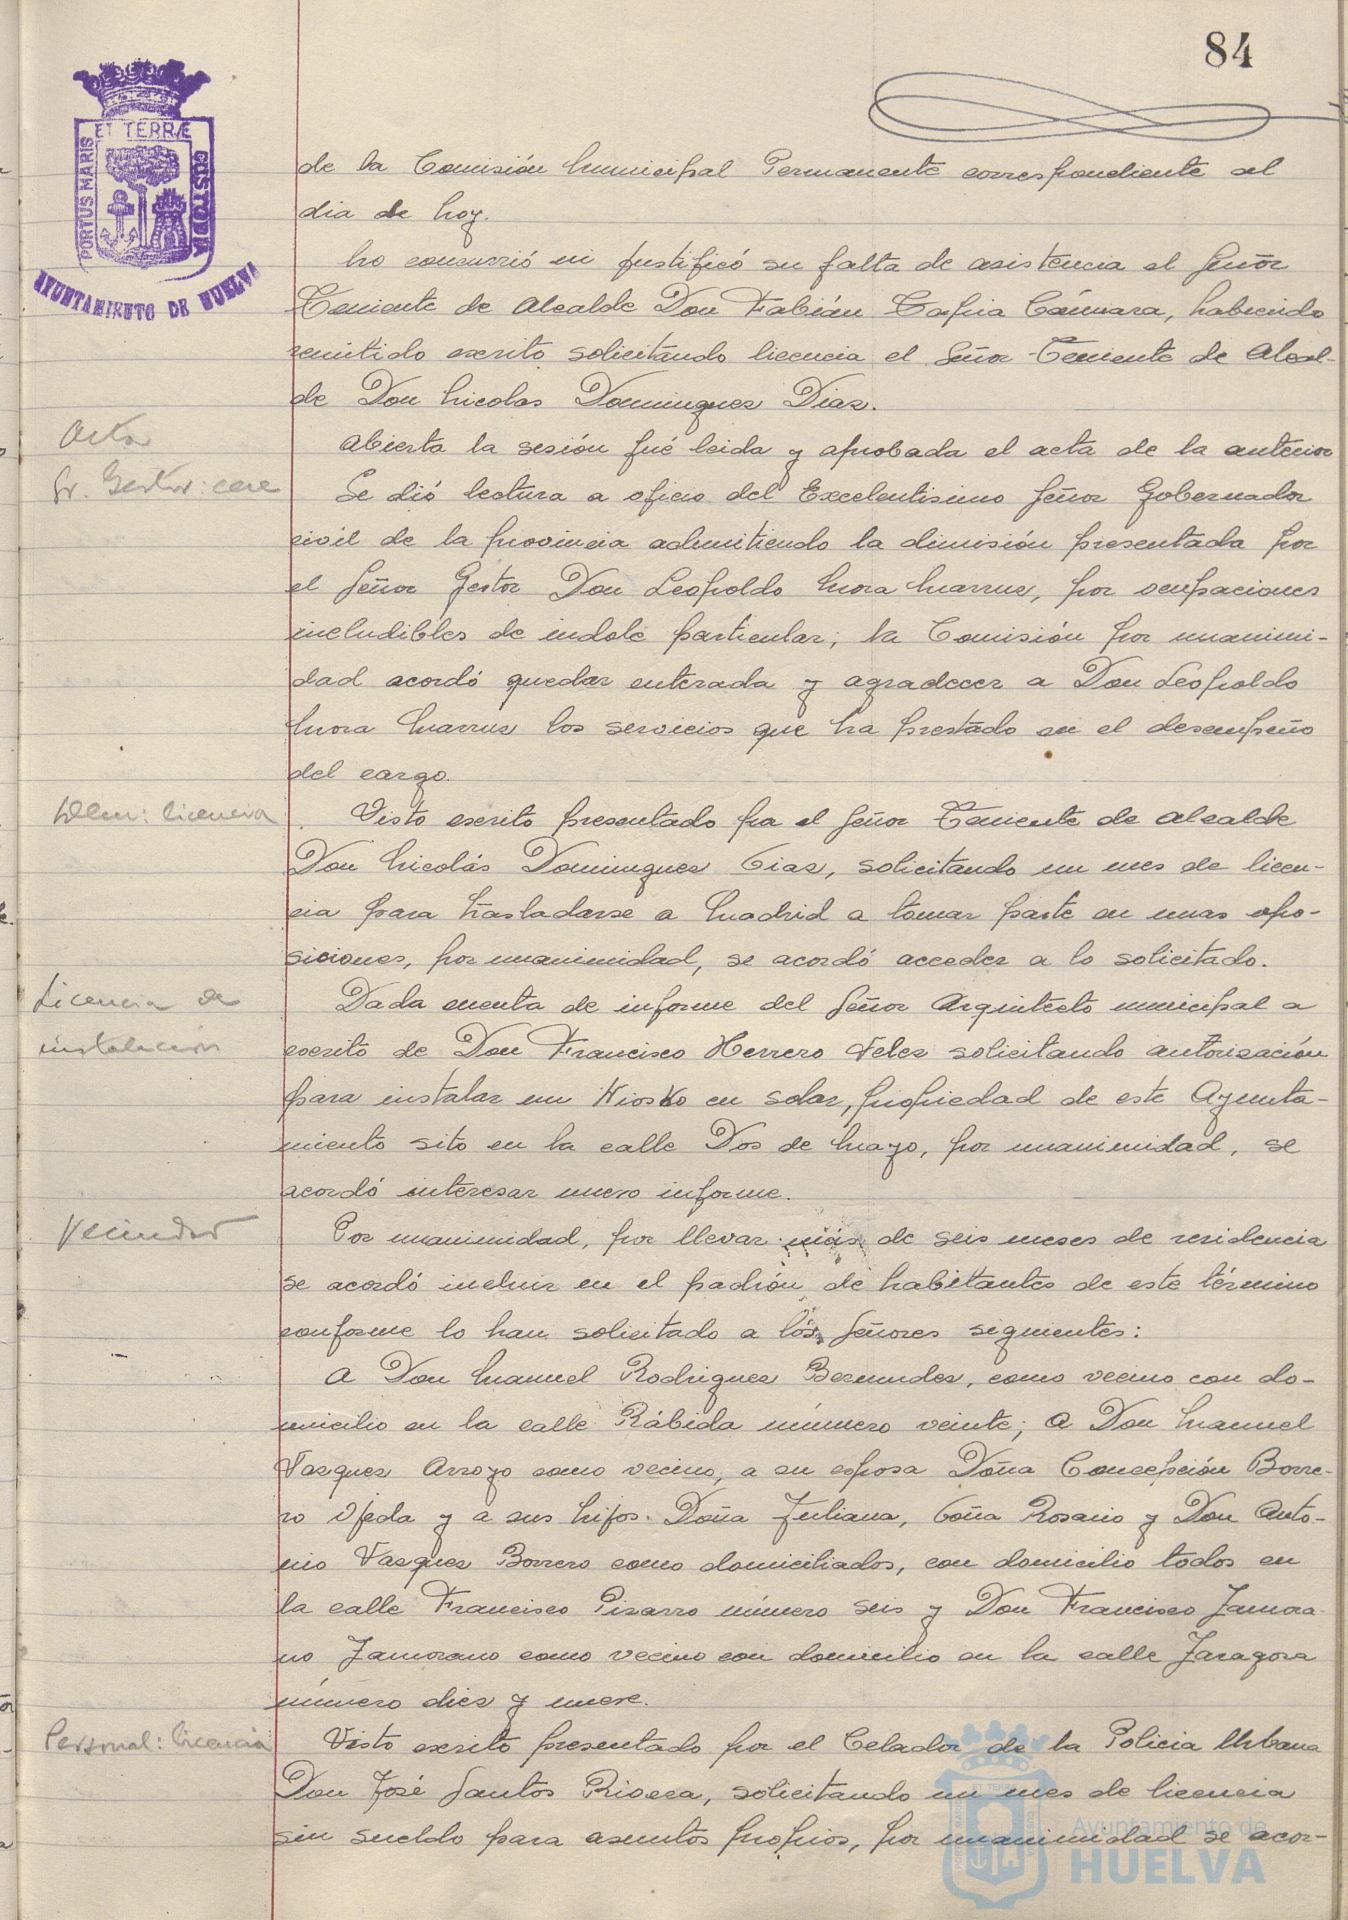 84
ET TERRÆ
PORTUS MARIS
CUSTODIA
AYUNTAMIENTO DE HUELVA
de la Comisión Municipal Permanente correspondiente al
dia de hoy.
No concurrió ni justificó su falta de asistencia el Señor
Teniente de Alcalde Don Fabián Tapia Cámara, habiendo
remitido escrito solicitando licencia el Señor Teniente de Alcal-
de Don Nicolas Dominguez Diaz.
Acta
Abierta la sesión fué leida y aprobada el acta de la anterior
Sr. Gestor: cese
Se dió lectura a oficio del Excelentisimo Señor Gobernador
civil de la provincia admitiendo la dimisión presentada por
el Señor Gestor Don Leopoldo Mora, por ocupaciones
ineludibles de indole particular; la Comisión por unanimi-
dad acordó quedar enterada y agradecer a Don Leopoldo
Mora los servicios que ha prestado en el desempeño
del cargo.
Idem: licencia
Visto escrito presentado por el Señor Teniente de Alcalde
Don Nicolás Dominguez Diaz, solicitando un mes de licen-
cia para trasladarse a Madrid a tomar parte en unas opo-
siciones, por unanimidad, se acordó acceder a lo solicitado.
Licencia de
instalación
Dada cuenta de informe del Señor Arquitecto municipal a
escrito de Don Francisco Herrero Velez solicitando autorización
para instalar un Kiosko en solar, propiedad de este Ayunta-
miento sito en la calle Dos de Mayo, por unanimidad, se
acordó interesar nuevo informe.
Vecindad
Por unanimidad, por llevar más de seis meses de residencia
se acordó incluir en el padrón de habitantes de este término
conforme lo han solicitado a los Señores siguientes:
A Don Manuel Rodriguez Bermudez, como vecino con do-
micilio en la calle Rábida número veinte; A Don Manuel
Vazquez Arroyo como vecino, a su esposa Doña Concepción Borre-
ro Ojeda y a sus hijos. Doña Juliana, Doña Rosario y Don Anto-
nio Vazquez Borrero como domiciliados, con domicilio todos en
la calle Francisco Pizarro número seis y Don Francisco Zamora-
no Zamorano como vecino con domicilio en la calle Zaragoza
número diez y nueve.
Personal: licencia
Visto escrito presentado por el Celador de la Policia Urbana
Don José Santos Rivera, solicitando un mes de licencia
sin sueldo para asuntos propios, por unanimidad se acor-
Ayuntamiento de
HUELVA